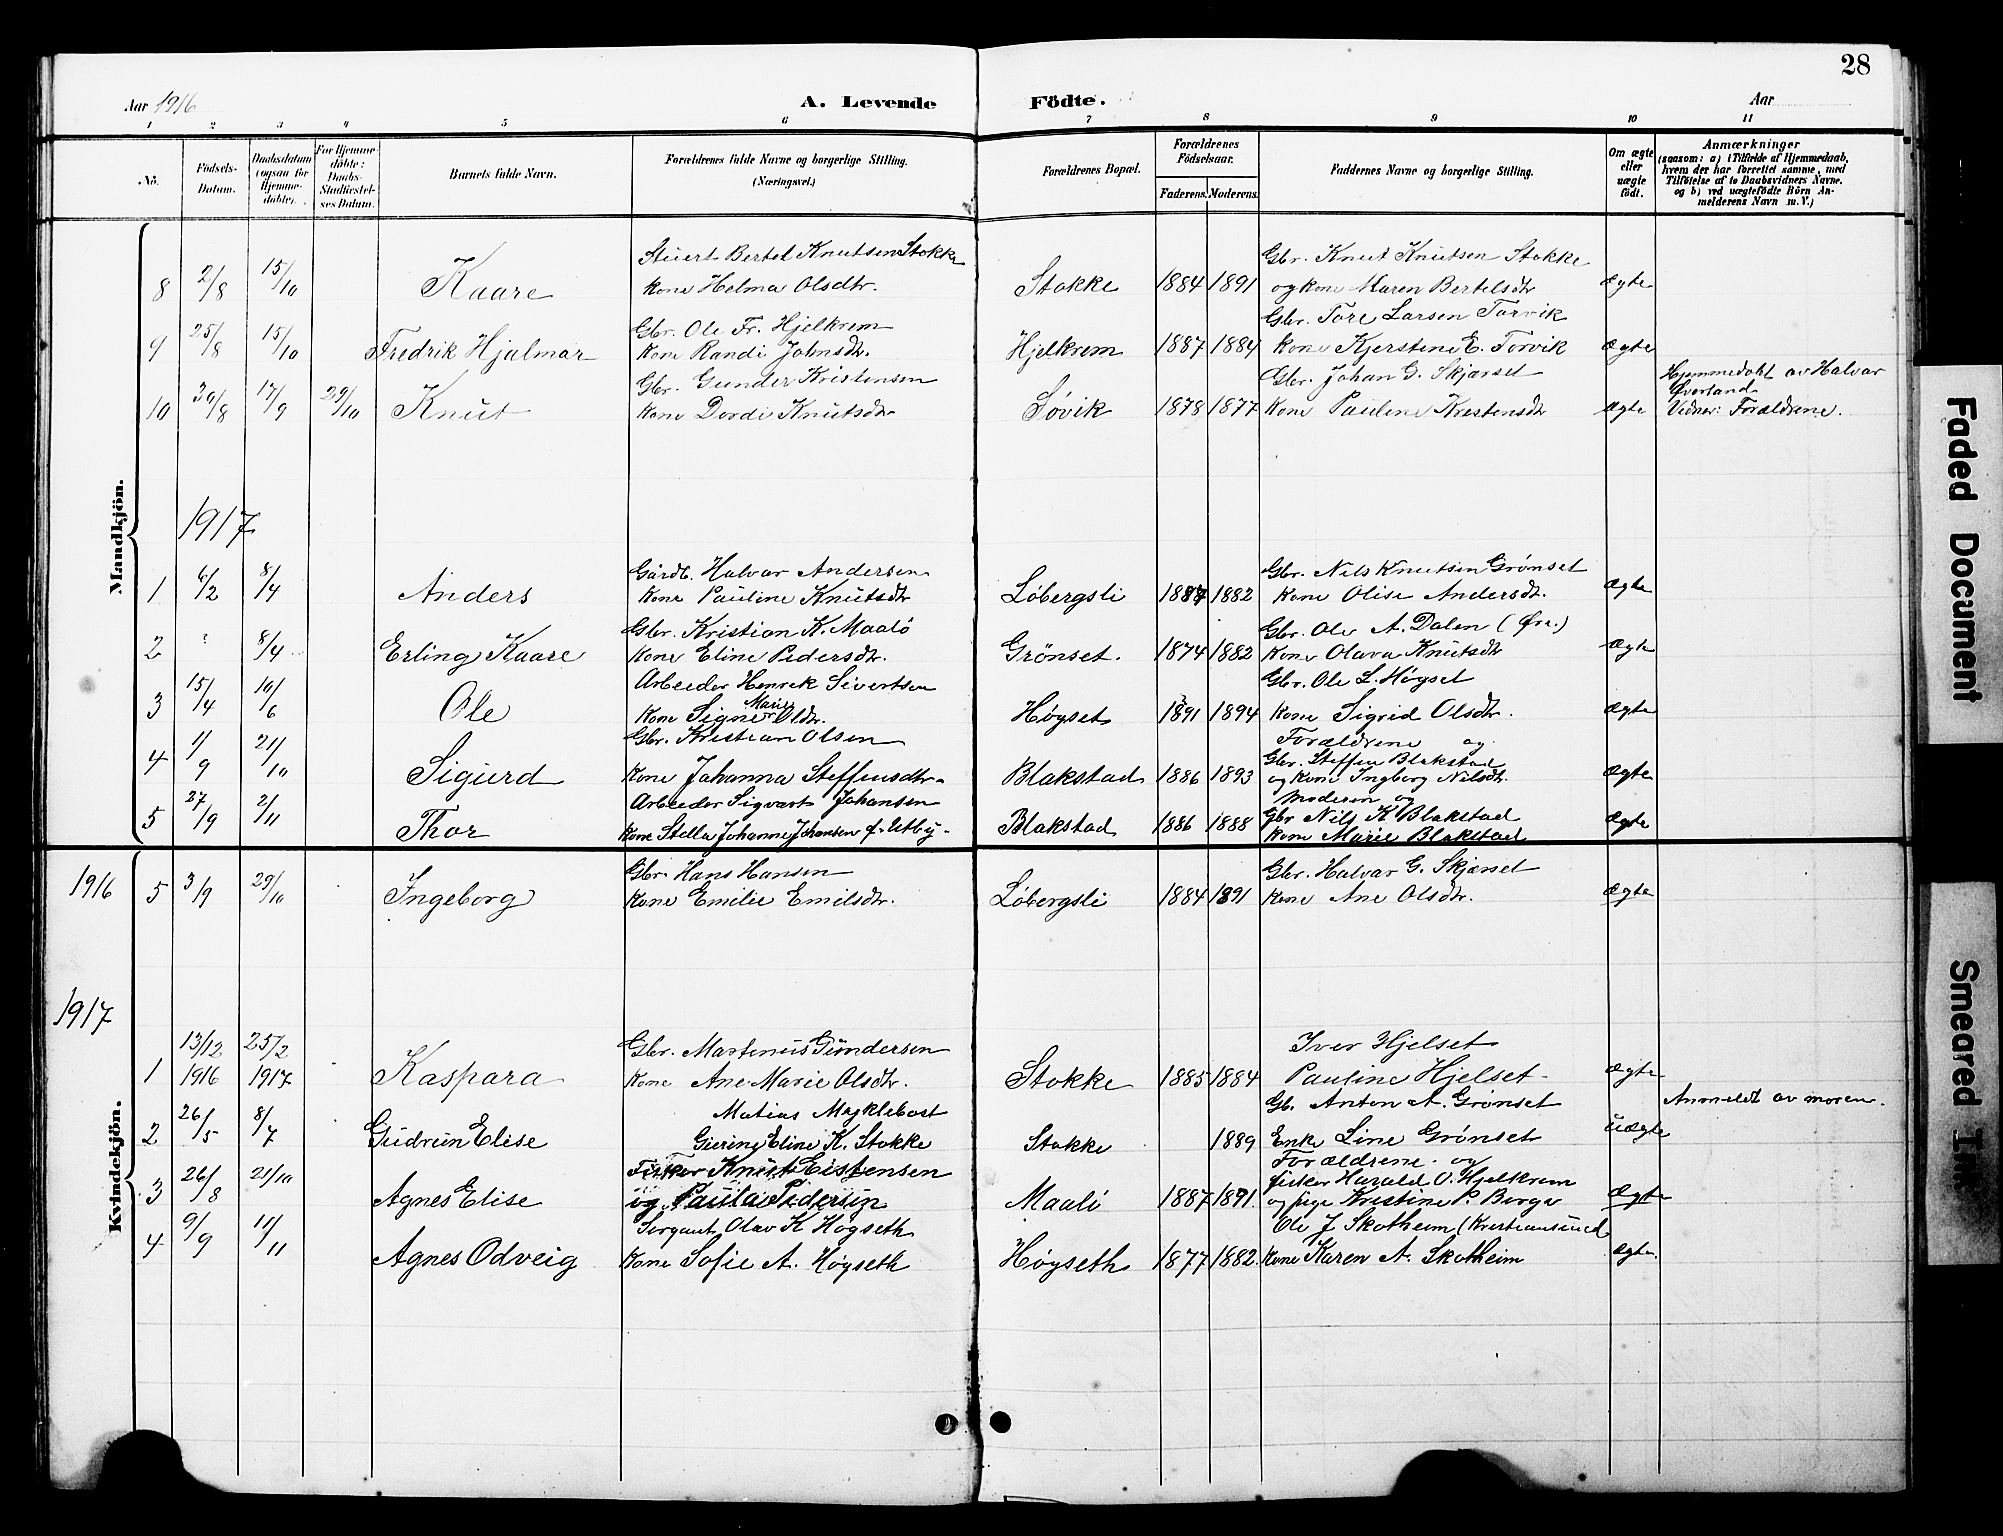 28
Aar 1916 A. Levende Födte. Aar
1 2 3 4 5 6 7 8 9 10 11
No. Födsels-Datum. Daabsdatum (ogsaa for Hjemme-døbte). For Hjemme-döbte: Daabs-Stadfæstel-ses Datum. Barnets fulde Navn. Forældrenes fulde Navne og borgerlige Stilling. (Næringsvei.) Forældrenes Bopæl. Forældrenes Födselsaar. Faderens. Moderens. Faddernes Navne og borgerlige Stilling. Om ægte eller uægte födt. Anmærkninger (saasom: a) i Tilfælde af Hjemmedaab, hvem der har forrettet samme, med Tilføielse af to Daabsvidners Navne, og b) ved uægtefödte Börn An-melderens Navn m. V.)
Mandkjön.
Stuert Bertel Knutsen Stokke Gbr. Knut Knutsen Stokke
8 2/8 15/10 Kaare Kone Helma Olsdtr. Stokke 1884 1891 og kone Maren Bertelsdtr ægte
Gbr. Ole Fr. Hjelkrem Gbr. Tore Larsen Torvik
9 25/8 15/10 Fredrik Hjalmar Kone Randi Johnsdtr. Hjelkrem 1887 1884 Kone Kjerstene E. Torvik ægte
Gbr. Gunder Kristensen Gbr. Johan G. Skjærset Hjemmedøbt av Halvar Øverland
10 30/8 17/9 29/10 Knut Kone Dordi Knutsdtr Søvik 1878 1877 Kone Pauline Kristensdtr ægte Vidner: Forældrene.
1917
Gårdb. Halvar Andersen Gbr. Nils Knutsen Grønset
1 6/2 8/4 Anders Kone Pauline Knutsdtr Løbergsli 1887 1882 Kone Olise Andersdtr. ægte
Gbr. Kristian K. Maalø Gbr. Ole A. Dalen (Øre.)
2 8/4 Erling Kaare Kone Eline Pedersdtr. Grönset. 1874 1882 Kone Olava Knutsdtr ægte
Arbeider Henrik Sivertsen Gbr. Ole L. Høgset
3 15/4 10/6 Ole Kone Signe Marie Oldtr. Høgset 1891 1894 Kone Sigrid Olsdtr. ægte
Gbr. Kristian Olsen Forældrene og
Gbr. Steffen Blakstad
4 1/9 21/10 Sigurd Kone Johanna Steffensdtr. Blakstad 1886 1893 og Kone Ingborg Nilsdtr. ægte
Arbeider Sigvart Johansen Moderen og
Gbr Nils K Blakstad
5 27/9 2/11 Thor Kone Stella Johanne Johansen f. Utby. Blakstad 1886 1888 Kone Marie Blakstad ægte
Kvindekjön.
Gbr. Hans Hansen Gbr. Halvar G. Skjærset
1916 5 3/9 29/10 Ingeborg Kone Emilie Emilsdtr. Løbergsli 1884 1891 Kone Ane Olsdtr. ægte
1917
13/12 25/2 Gbr. Martinus Gundersen Iver Hjelset
1 1916 1917 Kaspara Kone Ane Marie Olsdtr. Stokke 1885 1884 Pauline Hjelset ægte
Matias Myklebost Gb. Anton A. Grønset Anmeldt av moren.
2 26/5 8/7 Gudrun Elise Eline K. Stokke Stokke 1889 Enke Line Grønset uægte
Fisker Knut Eistensen Forældrene og
fisker Harald O. Hjelkrem
3 26/8 21/10 Agnes Elise og Paula Pedersen Maalö 1887 1891. og pige Kristine P. Berge ægte
Sergant Olav K Høgseth Ole J Skotheim (Kristiansund
4 9/9 11/11 Agnes Odveig Kone Sofie A. Høgseth Høgseth 1877 1882. Kone Karen A. Skotheim ægte.
Faded Document
Smeared Ink